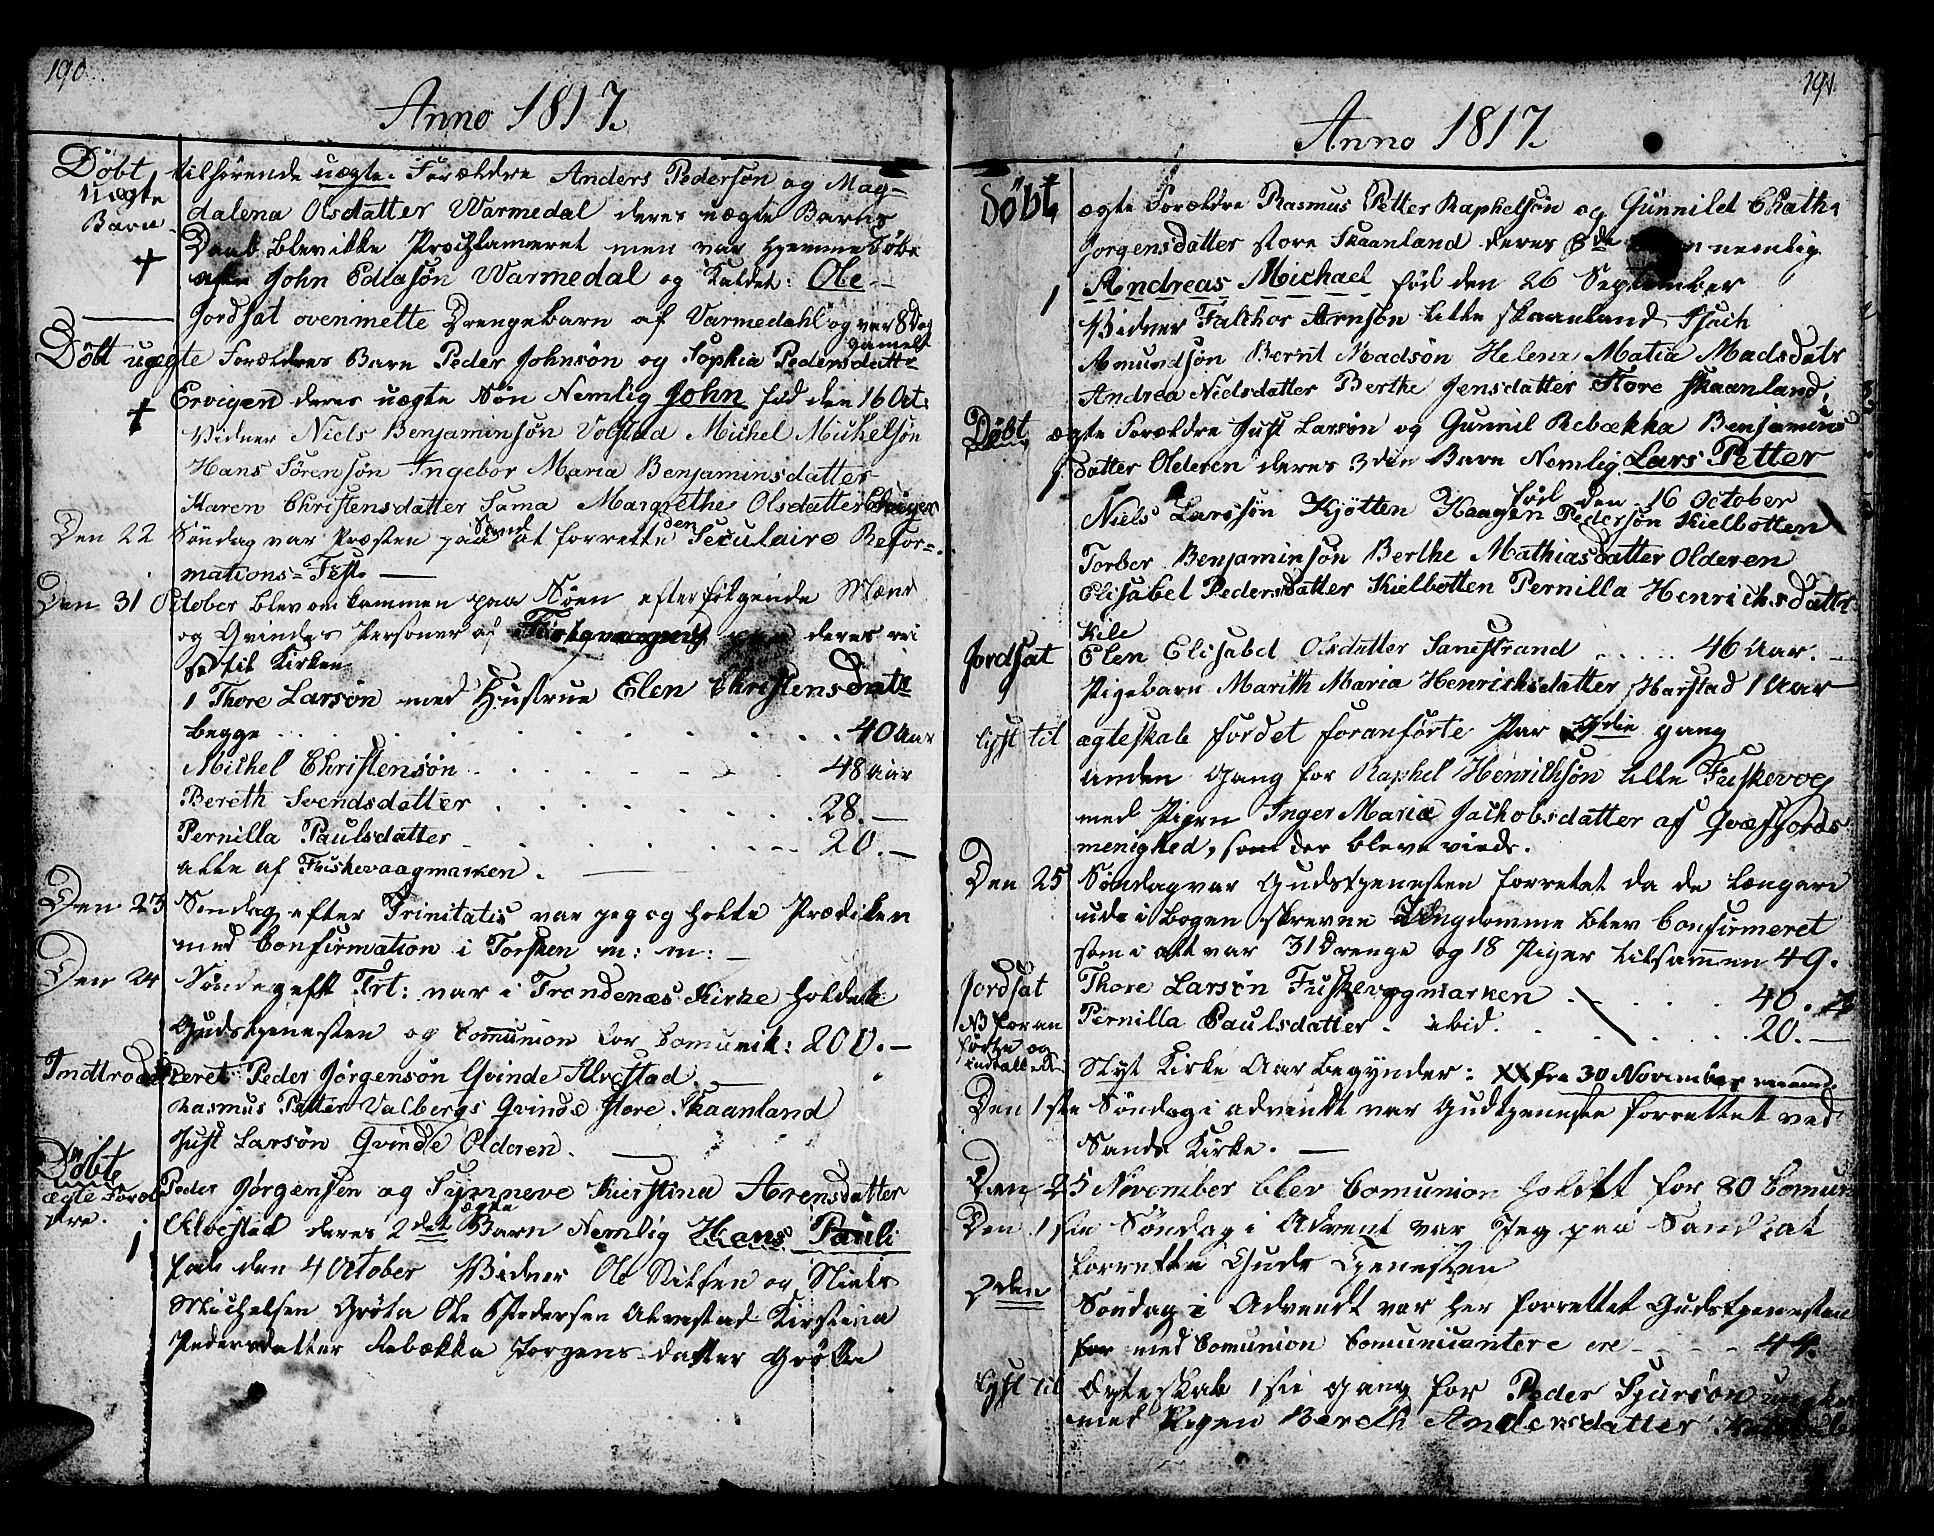 190.
Anno 1817.
Döbt tilhørende uægte Forældre Anders Pedersøn og Mag=
uægte dalena Olsdatter Warmedal deres uægte Barns
Barn Daab blev ikke Prochlameret men var hjemme døbt
+ John Warmedal og Kaldet: Ole
Jordsat ovenmelte Drengebarn af Varmedahl og var 8 Dag
gamelt
Döbt uægte Forældres Barn Peder Johnsøn og Sophia Pedersdattr
Ervigen deres uægte Søn Nemlig John fød den 16 Oct:
+ Vidner Niels Benjaminsøn Volstad Michel Michelsøn
Hans Sörensøn Ingebor Maria Benjaminsdatter
Karen Christensdatter Sama Margrethe Olsdatter
Den 22 Søndag var Præsten paa Sand at forrette den Seculaire Refor=
mations=Fest. —
Den 31 October blev omkommen paa Søen efterfølgende Mænd
og Qvindes Personer af deres rei
se til Kirken
1 Thore Larsøn med Hustrue Elen Christensdatr
begge . . . 40 Aar
Michel Christensøn . . . 48 Aar
Bereth Svendsdatter . . . 28. —
Pernilla Paulsdatter . . . 20. —
alle af Fuskevaagmarken. —
Den 23 Søndag efter Trinitatis var jeg og holte Prædiken
med Confirmation i Torsken m: m: —
Den 24 Søndag eft Trt: var i Trondenæs Kirke holdet
Gudstjenesten og Comunion for Comunik: 200. —
Indtroduceret Peder Jörgensön Qvinde Alvestad. —
Rasmus Petter Valbergs Qvinde Store Skaanland
Just Larsön Qvinde Olderen. —
Döbte Peder Jörgensen og Synneve Kierstina Arensdatter
ægte Foræl Alvestad deres 2det ægte Barn Nemlig Hans Pauli
dre.
1 fød den 4 October Vidner Ole Nilsen og Niels
Michelsen Gröta Ole Pedersen Alvestad Kirstina
Pedersdatter Rebækka Jorgensdatter Gröta
191.
Anno 1817.
Döbt ægte Forældre Rasmus Petter Raphelsøn og Gunnild Chath.
Jorgensdatter store Skaanland deres 8de nemlig
1 Andreas Michael fød den 26 September
Vidner Falchor Arnsøn Lille Skaanland Isach
Amundsøn Bernt Madsøn Helena Matia Madsdatr
Andrea Nielsdatter Berthe Jensdatter Store Skaanland
Döbt ægte Forældre Just Larsøn og Gunnil Rebækka Benjamins
1 datter Olderen deres 3die Barn Nemlig Lars Petter
fød den 16 October
Niels Larssön Kjötten Haagen Pedersön Kielbotten
Torber Benjaminsøn Berthe Mathiasdatter Olderen
Elisabet Pedersdatter Kielbotten Pernilla Henrichsdatter
Kile
Jordsat Elen Elisabet Olsdatter Sandstrand . . . 46 Aar. —
Pigebarn Marith Maria Henrichsdatter Harstad 1 Aar
lyst til ægteskab fordet foranførte Par 3die gang
anden gang for Raphel Henrichsøn Lille Fuskevog
med Pigen Inger Maria Jachobsdatter af Qvæfjords
menighed, som der bleve viede.
Den 25 Søndag var Gudstjenesten forretet da de længere
ude i Bogen skrevne Ungdomme blev Confirmeret
som i alt var 31 Drenge og 18 Piger tilsammen 49.
Jordsat Thore Larsön Fuskevogmarken . . . 40.
NB foran Pernilla Paulsdatter - ibid. . . . 20. —
førte og
indkalled Nyt Kirke Aar begynder: XX fra 30 November
Den 1ste Søndag i advendt var Gudtjeneste forrettet ved
Sands Kirke. —
Den 25 November blev Comunion holdt for 80 Comun
Den 1ste Søndag i Advent var Jeg paa Sand at
forrette Guds Tjenesten
2den Søndag i Advendt var her forrettet Gudstjenesten
for med Comunion Comunicantere ere - - - 44.
lyst til Ægteskab 1ste gang for Peder Sjursøn
med Pigen Bereth Andersdatter